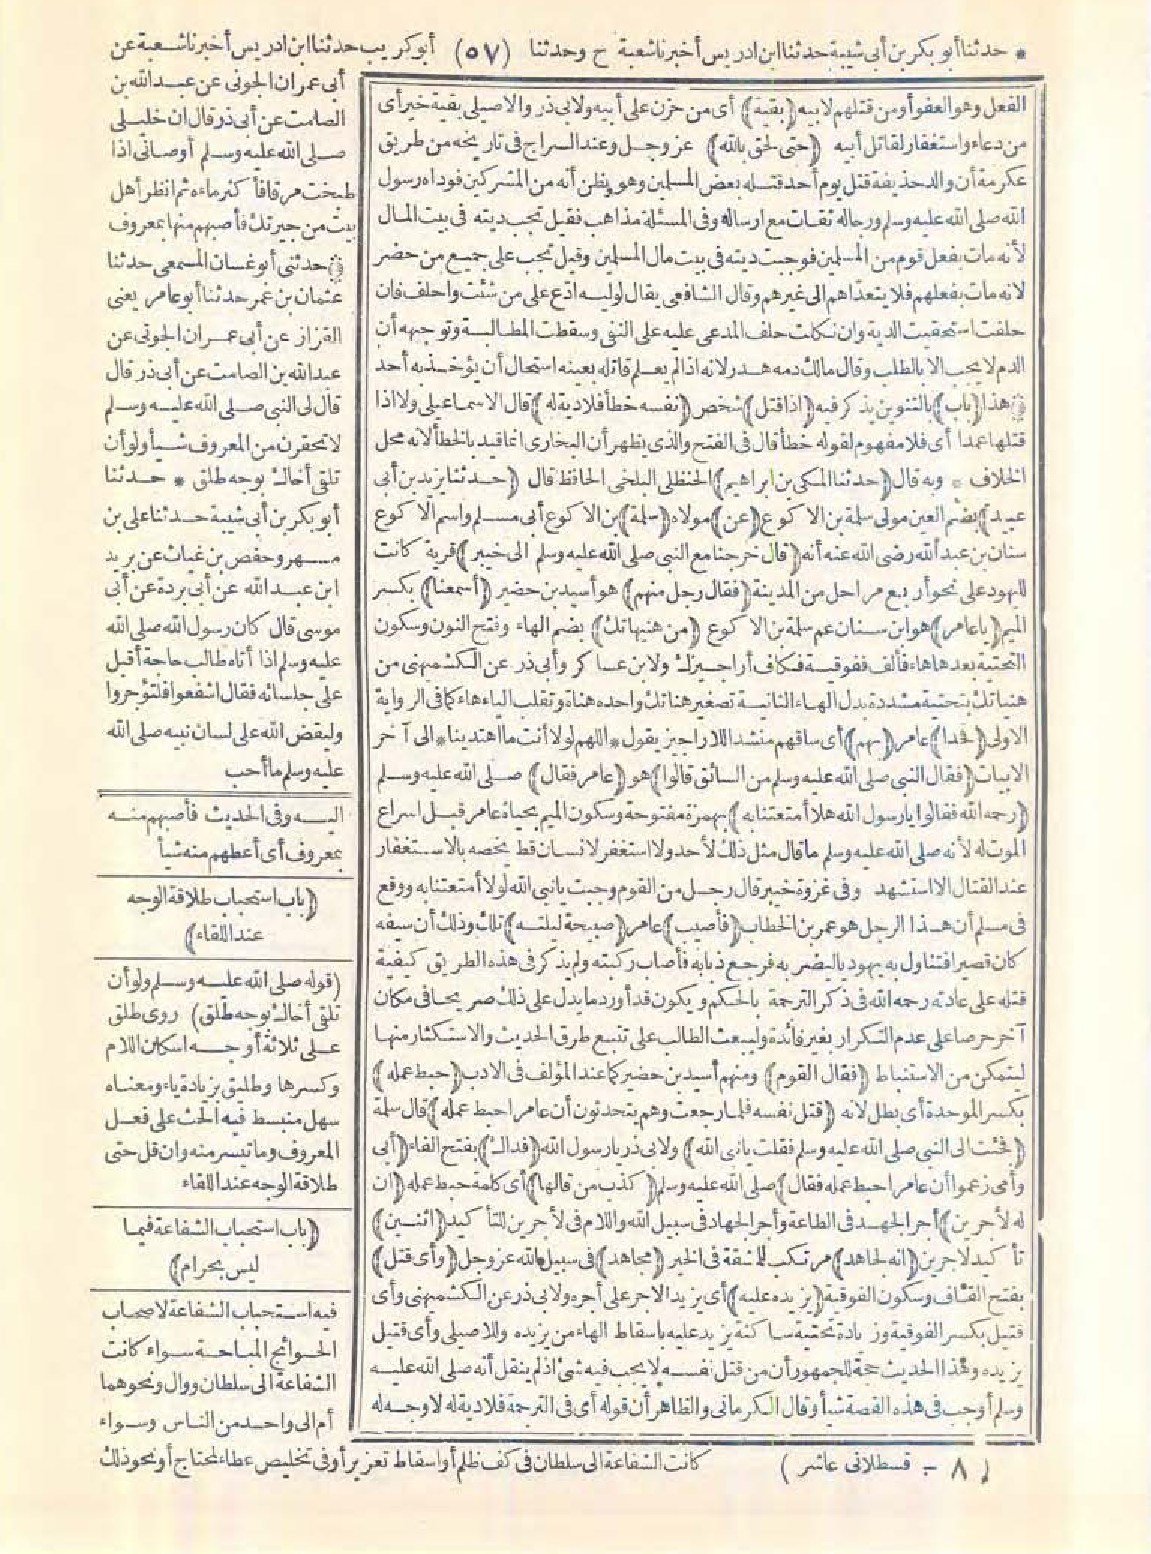 * حدثنا أبو بكر بن أبى شيبة حدثنا ابن ادريس أخبرنا شعبة ح وحدثنا (٥٧) أبو كريب حدثنا ابن ادريس أخبرنا شعبة عن
أبى عمران الجونى عن عبد الله بن
الصامت عن أبى ذر قال ان خليلى
صلى الله عليه وسلم أوصانى اذا
طبخت مرقا فأكثر ماءه ثم انظر أهل
بيت من جيرتك فأصبهم منها بمعروف
۞ حدثنى أبو غسان المسمعى حدثنا
عثمان بن عمر حدثنا أبو عامر يعنى
القزاز عن أبى عمران الجونى عن
عبد الله بن الصامت عن أبى ذر قال
قال لى النبى صلى الله عليه وسلم
لا تحقرن من المعروف شيأ ولو أن
تلقى أخاك بوجه طلق * حدثنا
أبو بكر بن أبى شيبة حدثنا على بن
مسهر وحفص بن غياث عن بريد
ابن عبد الله عن أبى بردة عن أبى
موسى قال كان رسول الله صلى الله
عليه وسلم اذا أتاه طالب حاجة أقبل
على جلسائه فقال اشفعوا فلتؤجروا
وليقض الله على لسان نبيه صلى الله
عليه وسلم ما أحب
اليه وفى الحديث فأصبهم منه
بمعروف أى أعطهم منه شيأ
(باب استحباب طلاقة الوجه
عند اللقاء)
(قوله صلى الله عليه وسلم ولو أن
تلقى أخاك بوجه طلق) روى طلق
على ثلاثة أوجه اسكان اللام
وكسرها وطليق بزيادة ياء ومعناه
سهل منبسط فيه الحث على فعل
المعروف وما تيسر منه وان قل حتى
طلاقة الوجه عند اللقاء
(باب استحباب الشفاعة فيما
ليس بحرام)
فيه استحباب الشفاعة لاصحاب
الحوائج المباحة سواء كانت
الشفاعة الى سلطان ووال ونحوهما
أم الى واحد من الناس وسواء
الفعل وهو العفو أو من قتلهم لابيه (بقية) أى من حزن على أبيه ولابى ذر والاصيلى بقية خير أى
من دعاء واستغفار لقاتل أبيه (حتى لحق بالله) عز وجل وعند السراج فى تاريخه من طريق
عكرمة أن والد حذيفة قتل يوم أحد قتله بعض المسلمين وهو يظن أنه من المشركين فوداه رسول
الله صلى الله عليه وسلم ورجاله ثقات مع ارساله وفى المسئلة مذاهب فقيل تجب ديته فى بيت المال
لأنه مات بفعل قوم من المسلمين فوجبت ديته فى بيت مال المسلمين وقيل تجب على جميع من حضر
لانه مات بفعلهم فلا يتعداهم الى غيرهم وقال الشافعى يقال لوليه ادّع على من شئت واحلف فان
حلفت استحقيت الدية وان نكلت حلف المدعى عليه على النفى وسقطت المطالبة وتوجيهه أن
الدم لا يجب الا بالطلب وقال مالك دمه هدر لانه اذا لم يعلم قاتله بعينه استحال أن يؤخذ به أحد
۞ هذا (باب) بالتنوين يذكر فيه (اذا قتل) شخص (نفسه خطأ فلا دية له) قال الاسماعيلى ولا اذا
قتلها عمدا أى فلا مفهوم لقوله خطأ قال فى الفتح والذى يظهر أن البخارى انما قيد بالخطأ لانه محل
الخلاف * وبه قال (حدثنا المكى بن ابراهيم) الحنظلى البلخى الحافظ قال (حدثنا يزيد بن أبى
عبيد) بضم العين مولى سلمة بن الاكوع (عن) مولاه (سلمة) بن الاكوع أبى مسلم واسم الاكوع
سنان بن عبد الله رضى الله عنه أنه (قال خرجنا مع النبى صلى الله عليه وسلم الى خيبر) قرية كانت
لليهود على نحو أربع مراحل من المدينة (فقال رجل منهم) هو أسيد بن حضير (أسمعنا) بكسر
الميم (يا عامر) هو ابن سنان عم سلمة بن الاكوع (من هنيهاتك) بضم الهاء وفتح النون وسكون
التحتية بعدها هاء فألف ففوقية فكاف أراجيزك ولابن عساكر وأبى ذر عن الكشميهنى من
هنياتك بتحتية مشددة بدل الهاء الثانية تصغير هناتك واحده هناة وتقلب الياء هاء كما فى الرواية
الاولى (فحدا) عامر (بهم) أى ساقهم منشد اللاراجيز يقول * اللهم لولا أنت ما اهتدينا * الى آخر
الابيات (فقال النبى صلى الله عليه وسلم من السائق قالوا) هو (عامر فقال) صلى الله عليه وسلم
(رحمه الله فقالوا يا رسول الله هلا أمتعتنا به) بهمزة مفتوحة وسكون الميم بحياة عامر قبل اسراع
الموت له لأنه صلى الله عليه وسلم ما قال مثل ذلك لأحد ولا استغفر لانسان قط يخصه بالاستغفار
عند القتال الا استشهد وفى غزوة خيبر قال رجل من القوم وجبت يا نبى الله لولا أمتعتنا به ووقع
فى مسلم أن هذا الرجل هو عمر بن الخطاب (فأصيب) عامر (صبيحة ليلته) تلك وذلك أن سيفه
كان قصيرا فتناول به يهوديا ليضربه فرجع ذبابه فأصاب ركبته ولم يذكر فى هذه الطريق كيفية
قتله على عادته رحمه الله فى ذكر الترجمة بالحكم ويكون قد أورد ما يدل على ذلك صريحا فى مكان
آخر حرصا على عدم التكرار بغير فائدة وليبعث الطالب على تتبع طرق الحديث والاستكثار منها
ليتمكن من الاستنباط (فقال القوم) ومنهم أسيد بن حضير كما عند المؤلف فى الادب (حبط عمله)
بكسر الموحدة أى بطل لانه (قتل نفسه فلما رجعت وهم يتحدثون أن عامرا حبط عمله) قال سلمة
(فجئت الى النبى صلى الله عليه وسلم فقلت يا نبى الله) ولابى ذر يا رسول الله (فداك) بفتح الفاء (أبى
وأمى زعموا أن عامرا حبط عمله فقال) صلى الله عليه وسلم (كذب من قالها) أى كلمة حبط عمله (ان
له لأجرين) أجر الجهد فى الطاعة وأجر الجهاد فى سبيل الله واللام فى لأجرين للتأكيد (اثنين)
تأكيد لاجرين (انه لجاهد) مرتكب للمشقة فى الخير (مجاهد) فى سبيل الله عز وجل (وأى قتل)
بفتح القاف وسكون الفوقية (يزيده عليه) أى يزيد الاجر على أجره ولابى ذر عن الكشميهنى وأى
قتيل بكسر الفوقية وزيادة تحتية ساكنة يزيد عليه باسقاط الهاء من يزيده وللاصيلى وأى قتيل
يزيده وهذا الحديث حجة للجمهور أن من قتل نفسه لا يجب فيه شئ اذ لم ينقل أنه صلى الله عليه
وسلم أوجب فى هذه القصة شيأ وقال الكرمانى والظاهر أن قوله أى فى الترجمة فلا دية له لا وجه له
(٨ - قسطلانى عاشر) كانت الشفاعة الى سلطان فى كف ظلم أو اسقاط تعزير أو فى تخليص عطاء لمحتاج أو نحو ذلك